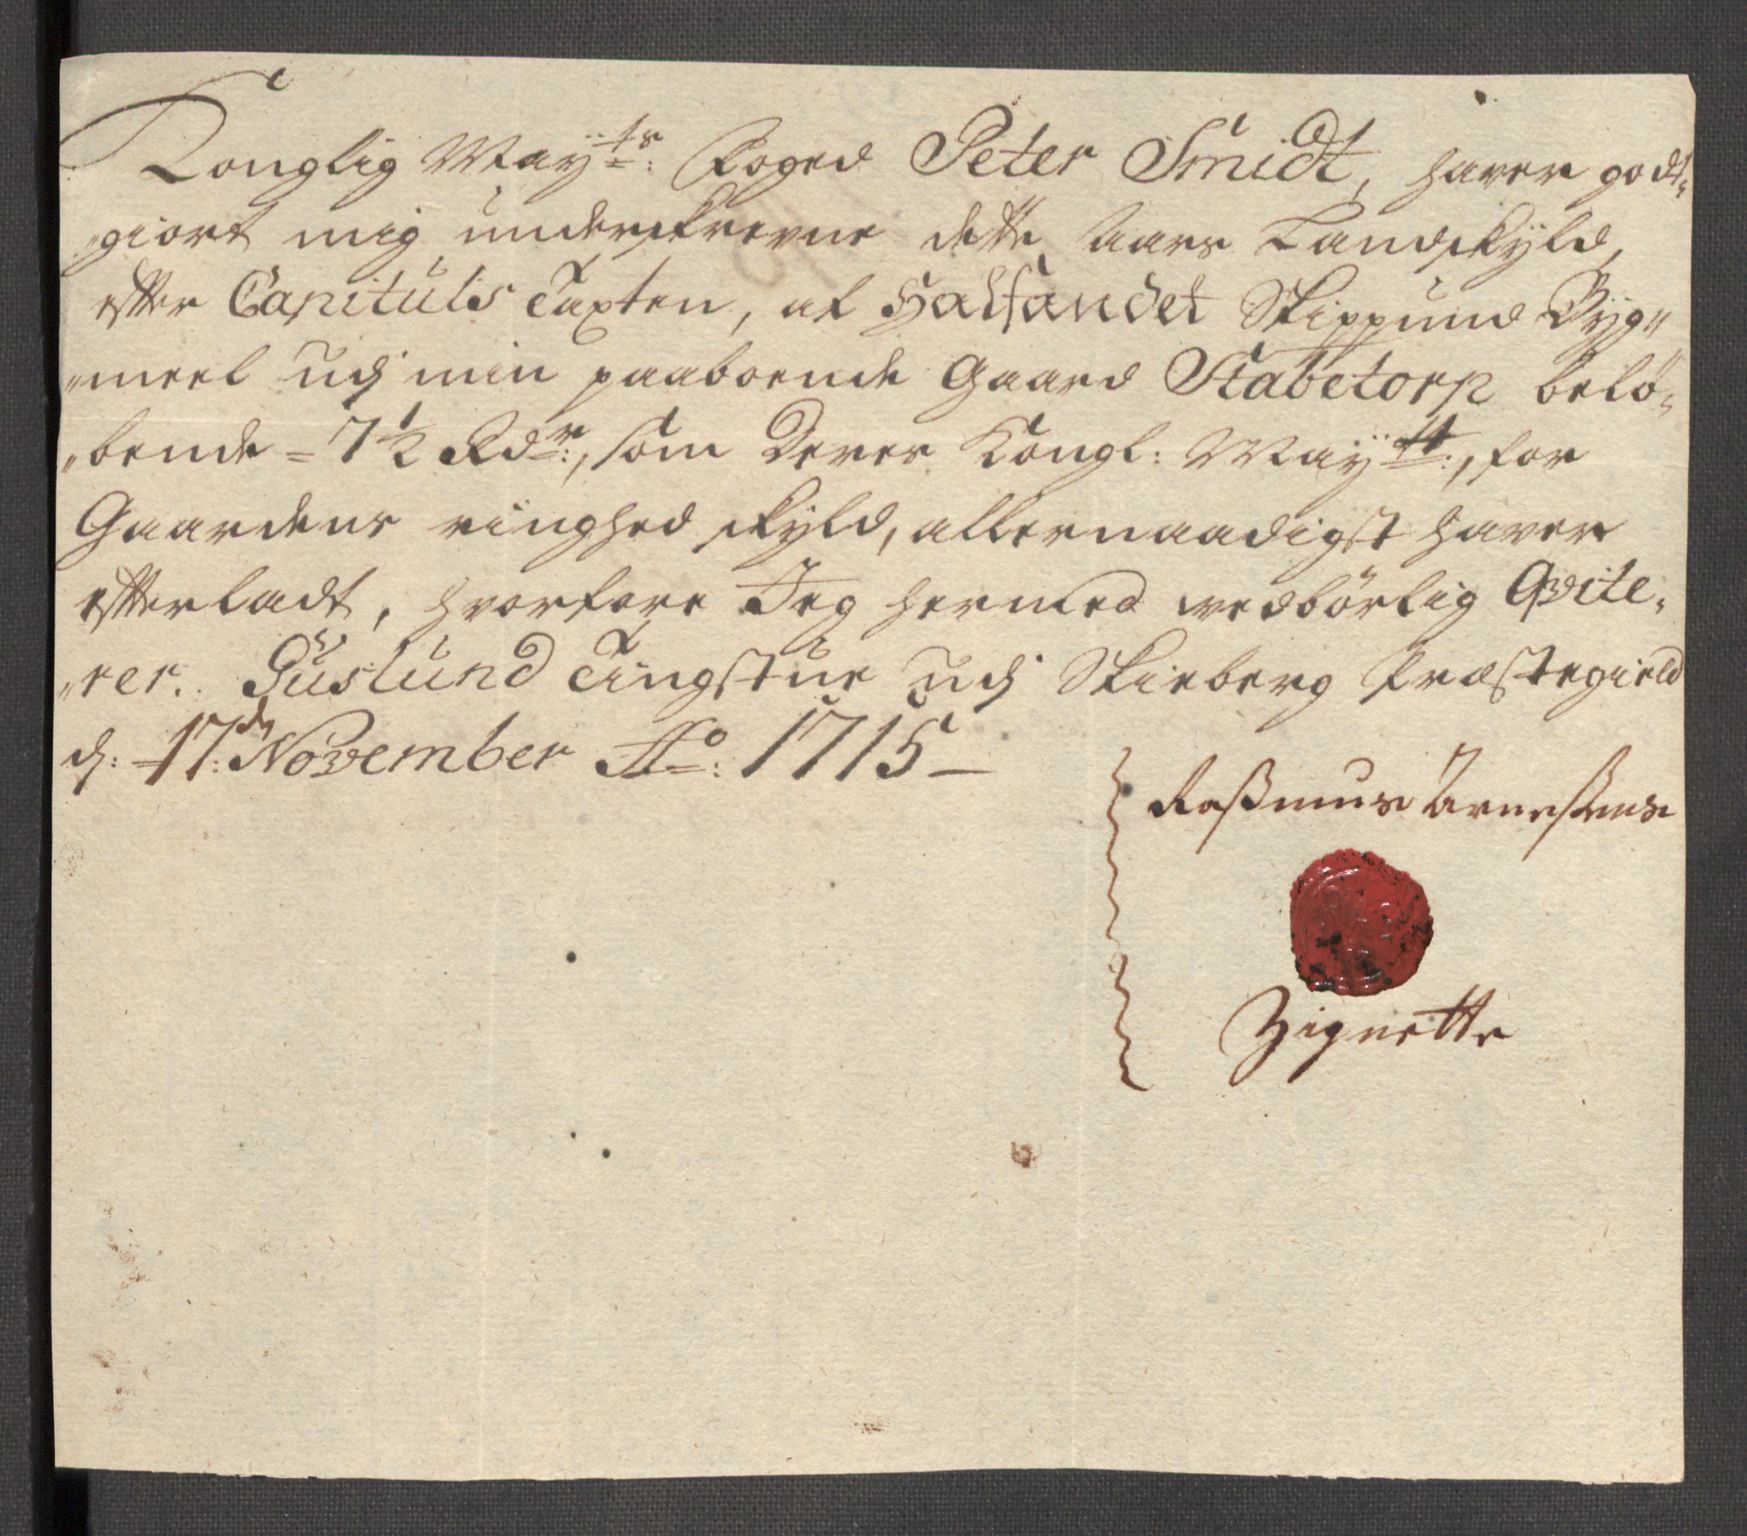 Konglig Mayts: Foged Peter Smidt, haver godt„
„giort mig underskrevne dette Aars Landskyld,
efter Capituls Taxten, af Halfandet Skippund Byg„
„meel udj min paaboende Gaard Stabetorp belö„
„bende = 7½ Rdr:, som Deres Kongl: Maytt:, for
Gaardens ringhed skyld, allernaadigst haver
efterladt, hvorfore Jeg hermed vedbörlig Qvite„
„rer. Guslund Tingstue udj Skieberg Præstegield
d: 17de: November Ao: 1715
Rasmus Arneßens
Zignette